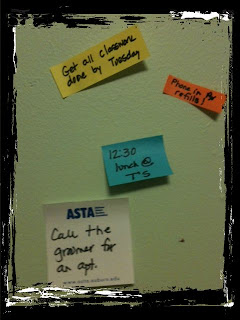 Get all classwork
done by Tuesday
Phone in for
refills!
12:30
lunch @
T'S
ASTA
Call the
groomer for
an apt.
www.asta.auburn.edu